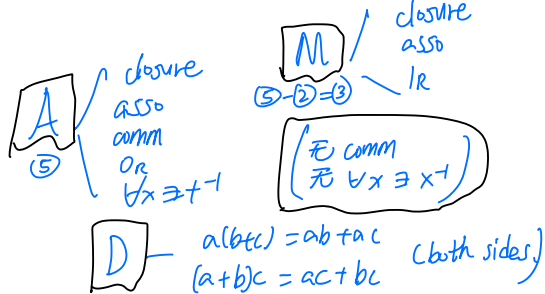 A
⑤
closure
asso
comm
0R
∀x ∃ +⁻¹
M
⑤-②=③
closure
asso
1R
(无 comm
无 ∀x ∃ x⁻¹)
D
a(b+c) = ab+ac
(a+b)c = ac+bc
(both sides)